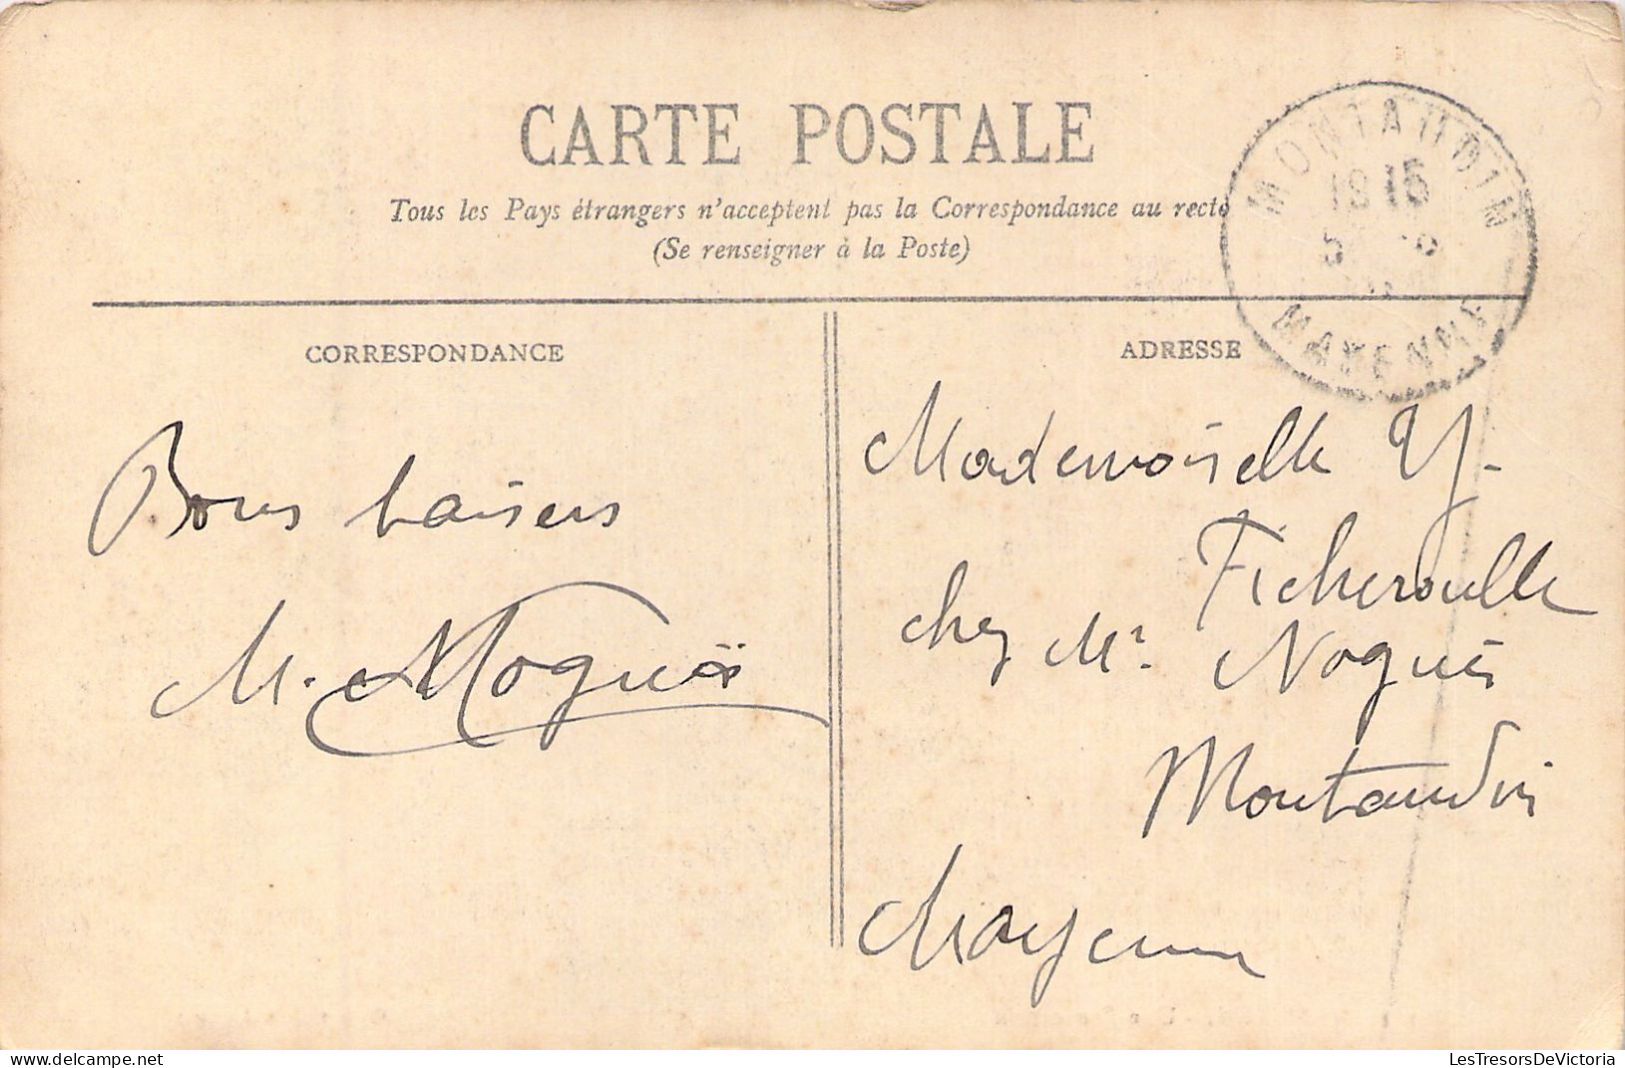 CARTE POSTALE
Tous les Pays étrangers n'acceptent pas la Correspondance au recto
(Se renseigner à la Poste)
MONTAUDIN
18 15
MAYENNE
CORRESPONDANCE
ADRESSE
Bons baisers
M. Noguès
Mademoiselle Y.
Ficheroulle
chez Mr. Noguès
Montaudin
Mayenne
LesTresorsDeVictoria